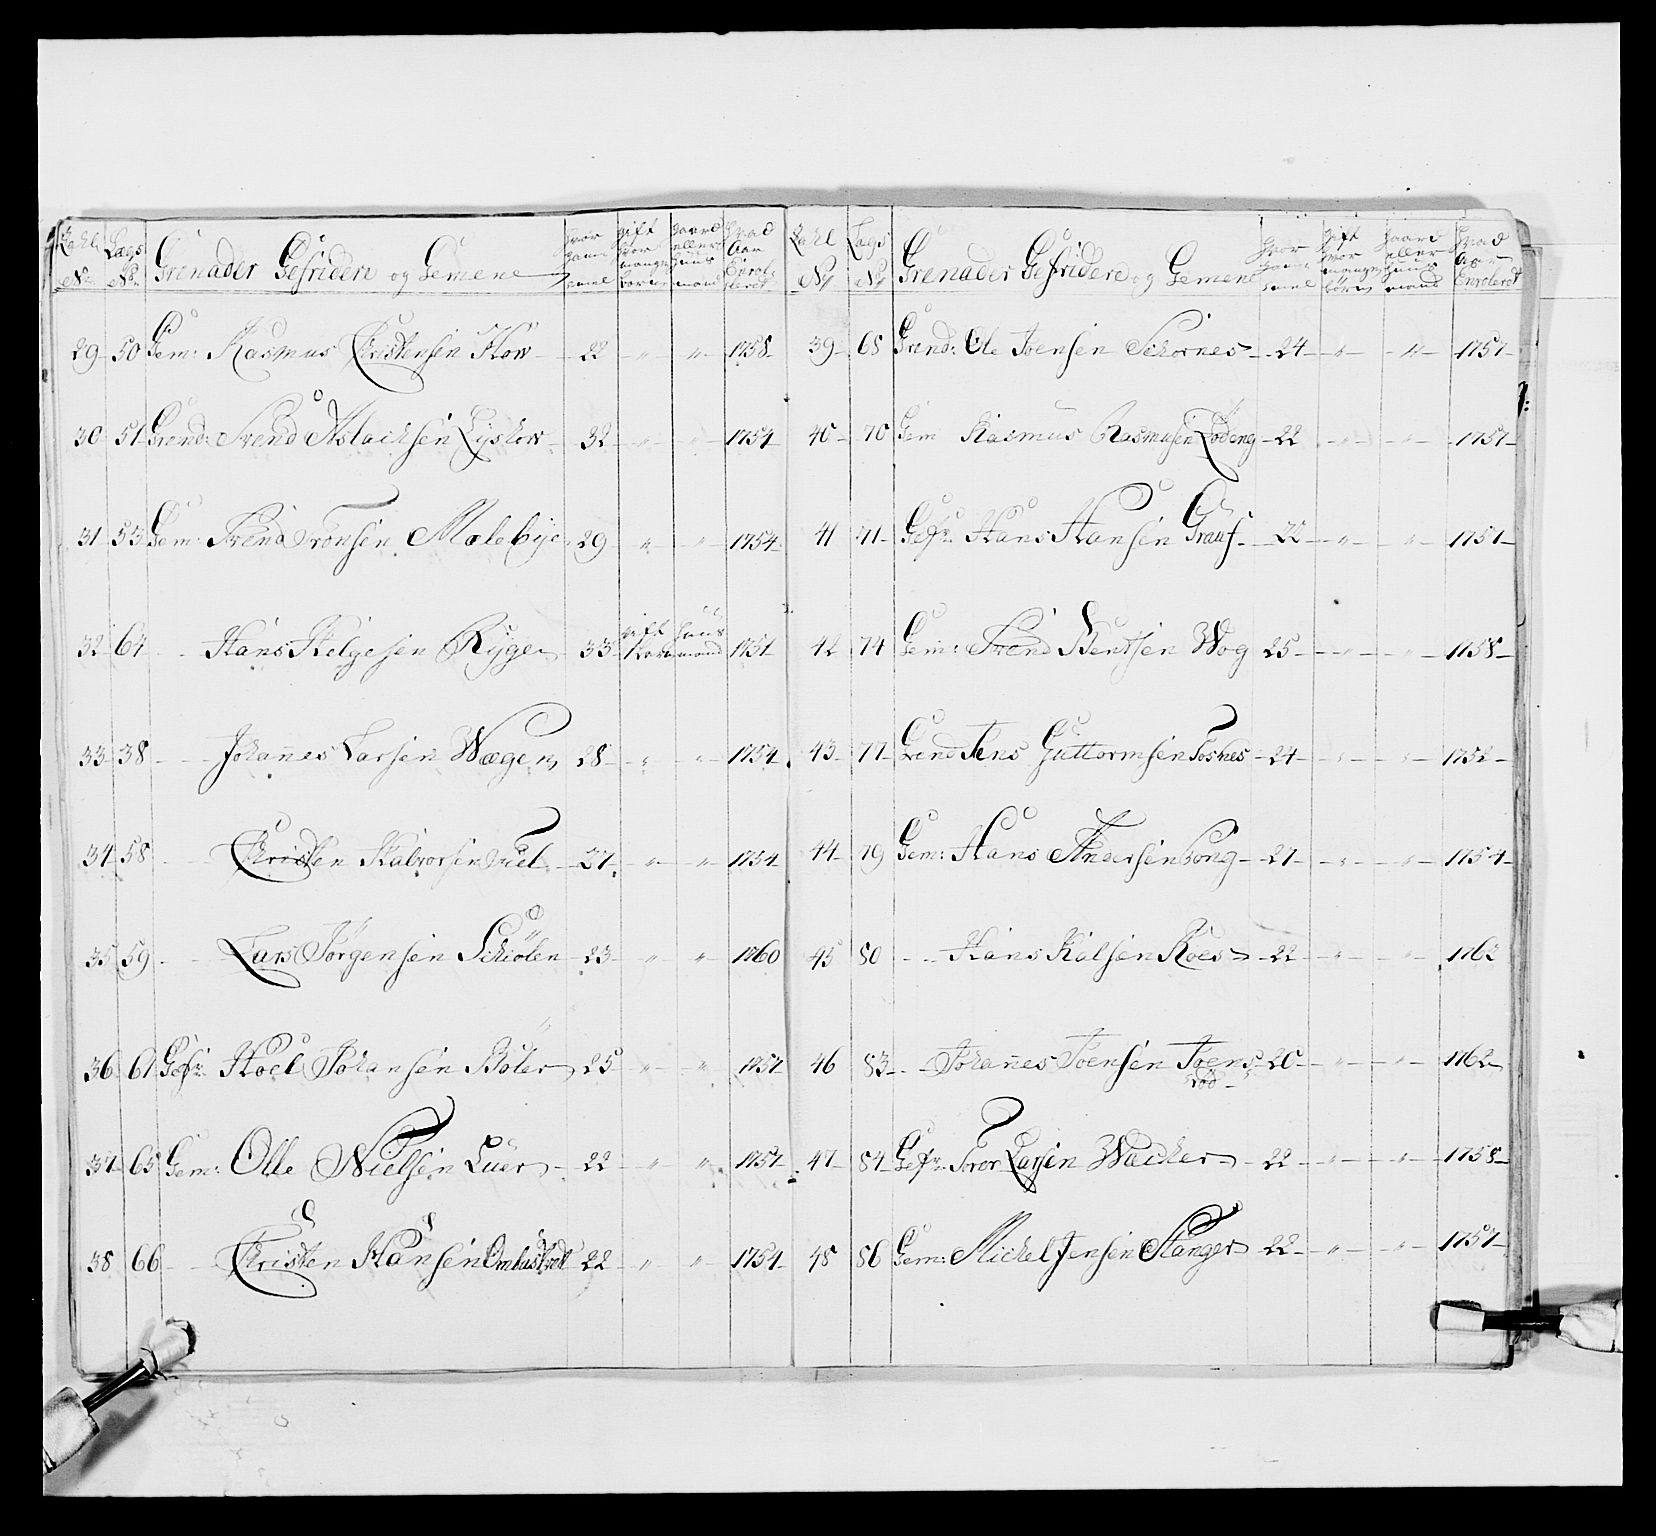 Zahl No Lægs No Grenader Gefridere og Gemene Hvor gamel gift hvor mange børn gaard eller huus mand Hvad Aar Enrolleret
29 50 Gem: Rasmus Christensen How 22 " " 1758
30 51 Grend: Svend Aslachsen Lyskow 32 " " 1754
31 53 Gem: Svend Tronsen Molebye 29 " " 1754
32 64 Hans Helgesen Ryge 33 gift huus mand 1751
33 38 Johanes Larsen Wægen 28 " " 1754
34 58 Christen Halvorsen 27 " " 1754
35 59 Lars Jørgensen Schiølen 23 " " 1760
36 61 Gefr: Hoel Johansen Bøler 25 " " 1757
37 65 Gem: Olle Nielsen Luer 22 " " 1757
38 66 Christen Hansen Ombustvedt 22 " " 1754
Zahl No Lægs No Grenader Gefridere og Gemene Hvor gamel gift hvor mange børn gaard eller huus mand Hvad Aar Enrolleret
39 68 Grend: Ole Joensen Schornes 24 " " 1757
40 70 Gem Rasmus Rasmusen Lødeng 22 " " 1757
41 71 Gefr: Hans Hansen Grauf 22 " " 1757
42 74 Gem: Svend Bentsen Wog 25 " " 1758
43 77 Grend Jens Guttormsen Fosnes 24 " " 1752
44 79 Gem: Hans Andersen Bong 27 " " 1754
45 80 Hans Kalsen Roes 22 " " 1762
46 83 Johanes Joensen Joens 20 " " 1762
rød
47 84 Gefr: Tror Larsen Wacker 22 " " 1758
48 86 Gem: Michel Jensen Stanger 22 " " 1757